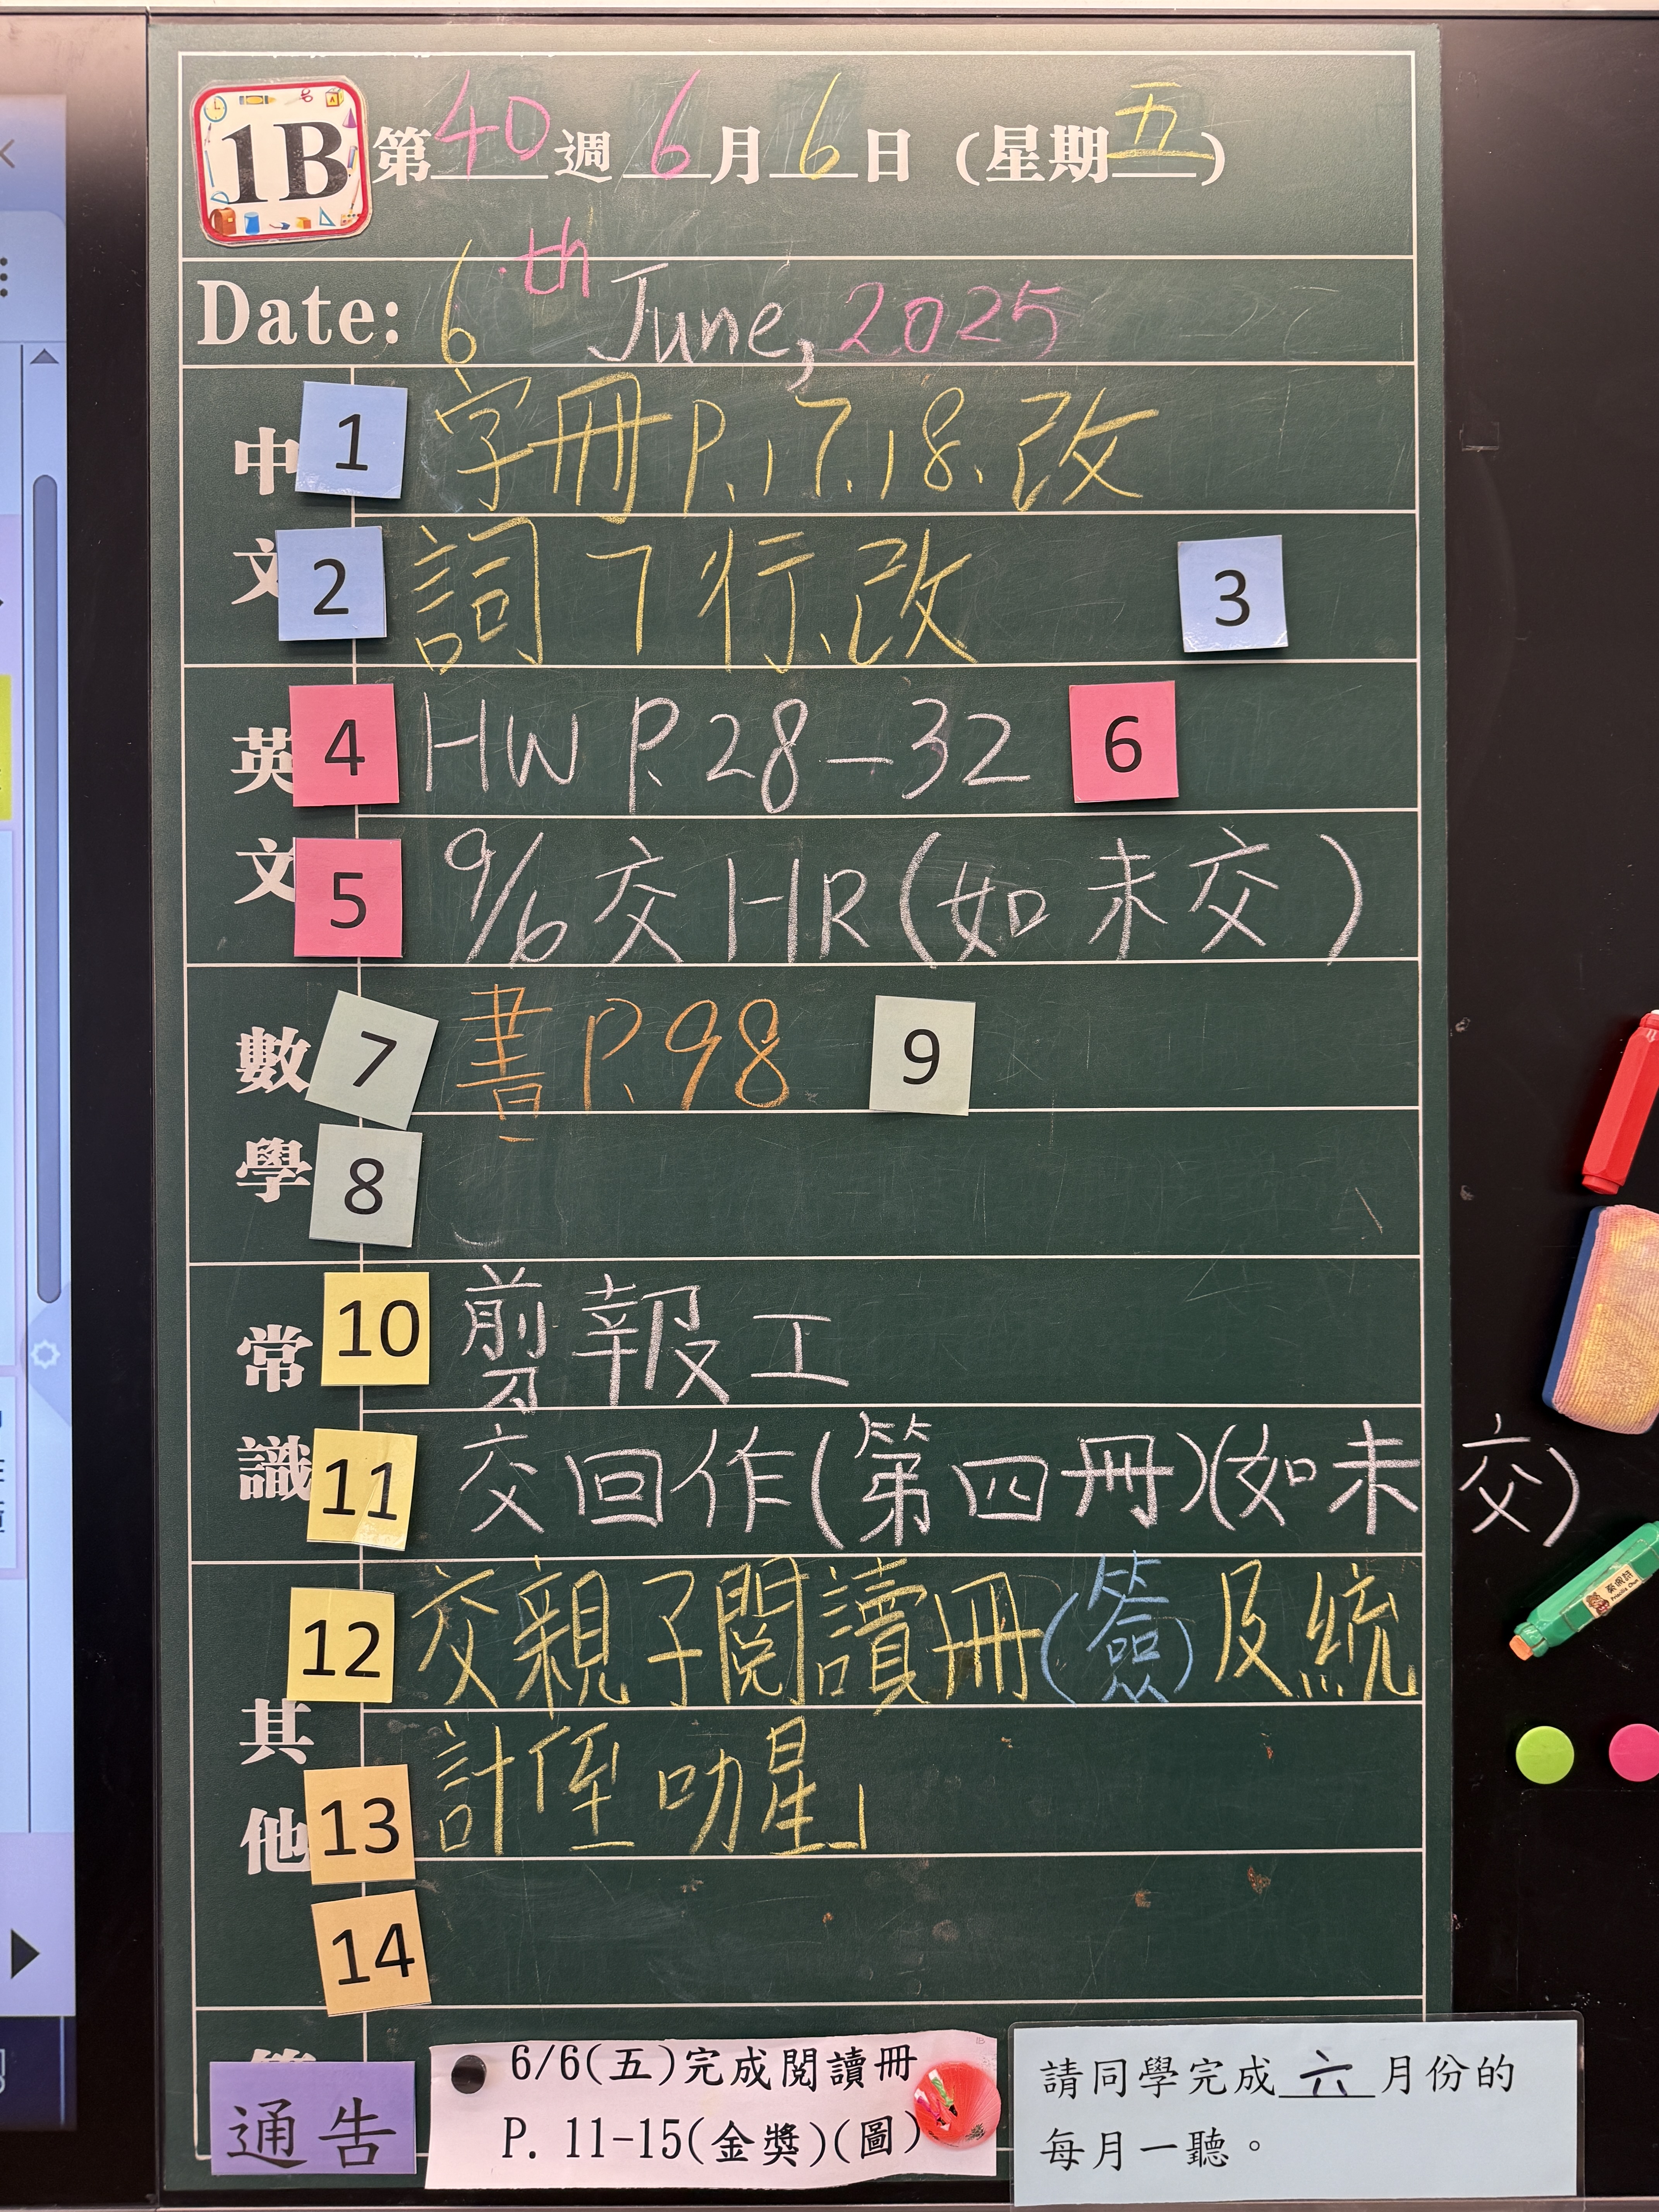 1B 第40週 6月6日 (星期五)
Date: 6th June, 2025
中文
1 字冊 P.17.18.改
2 詞7行.改 3
英文
4 HW P.28-32 6
5 9/6交HR(如未交)
數學
7 書P.98 9
8
常識
10 剪報工
11 交回作(第四冊)(如未交)
其他
12 交親子閱讀冊(簽)及統
13 計
14
通告
6/6(五)完成閱讀冊
P. 11-15(金獎)(圖)
請同學完成六月份的
每月一聽。